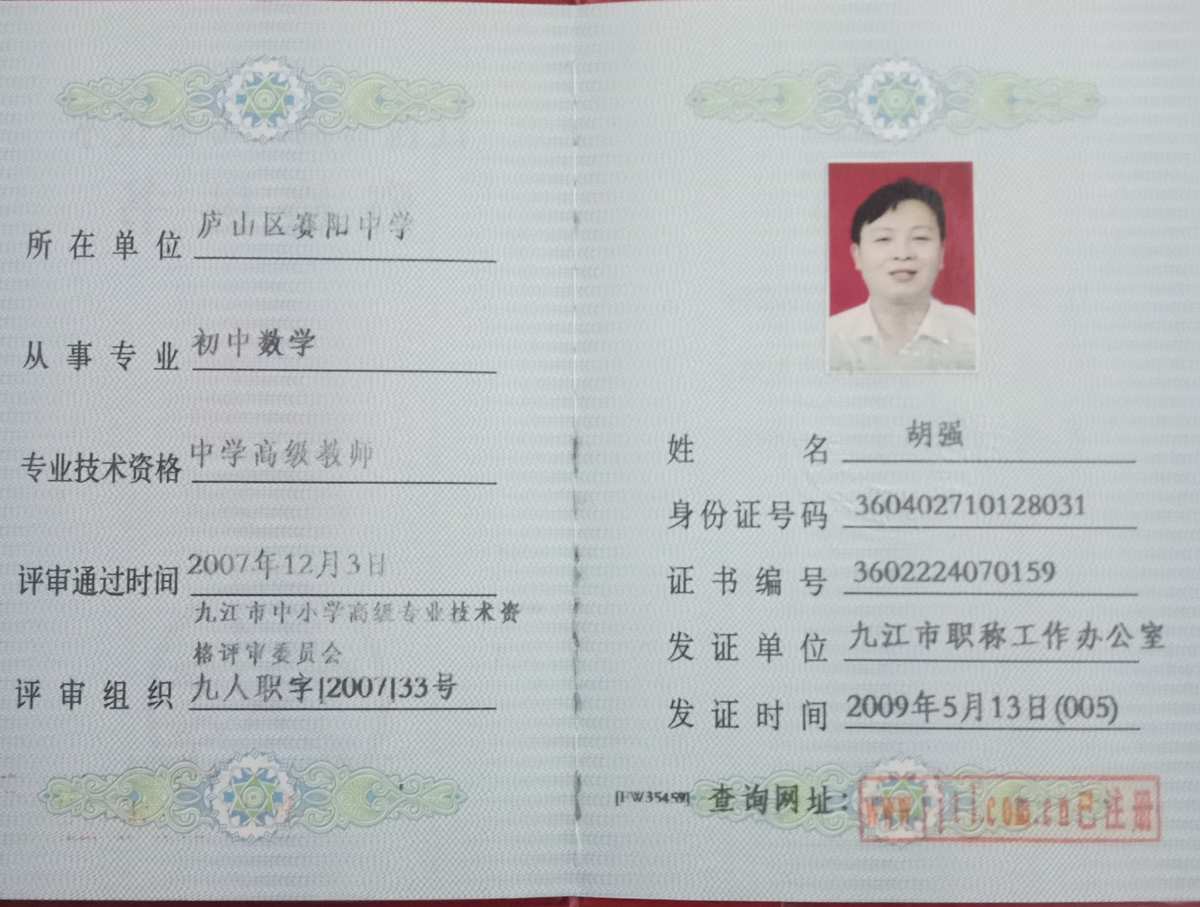 所在单位 庐山区赛阳中学
从事专业 初中数学
专业技术资格 中学高级教师
评审通过时间 2007年12月3日
九江市中小学高级专业技术资
格评审委员会
评审组织 九人职字[2007]33号
姓名 胡强
身份证号码 360402710128031
证书编号 3602224070159
发证单位 九江市职称工作办公室
发证时间 2009年5月13日(005)
[FW35459] 查询网址：
已注册